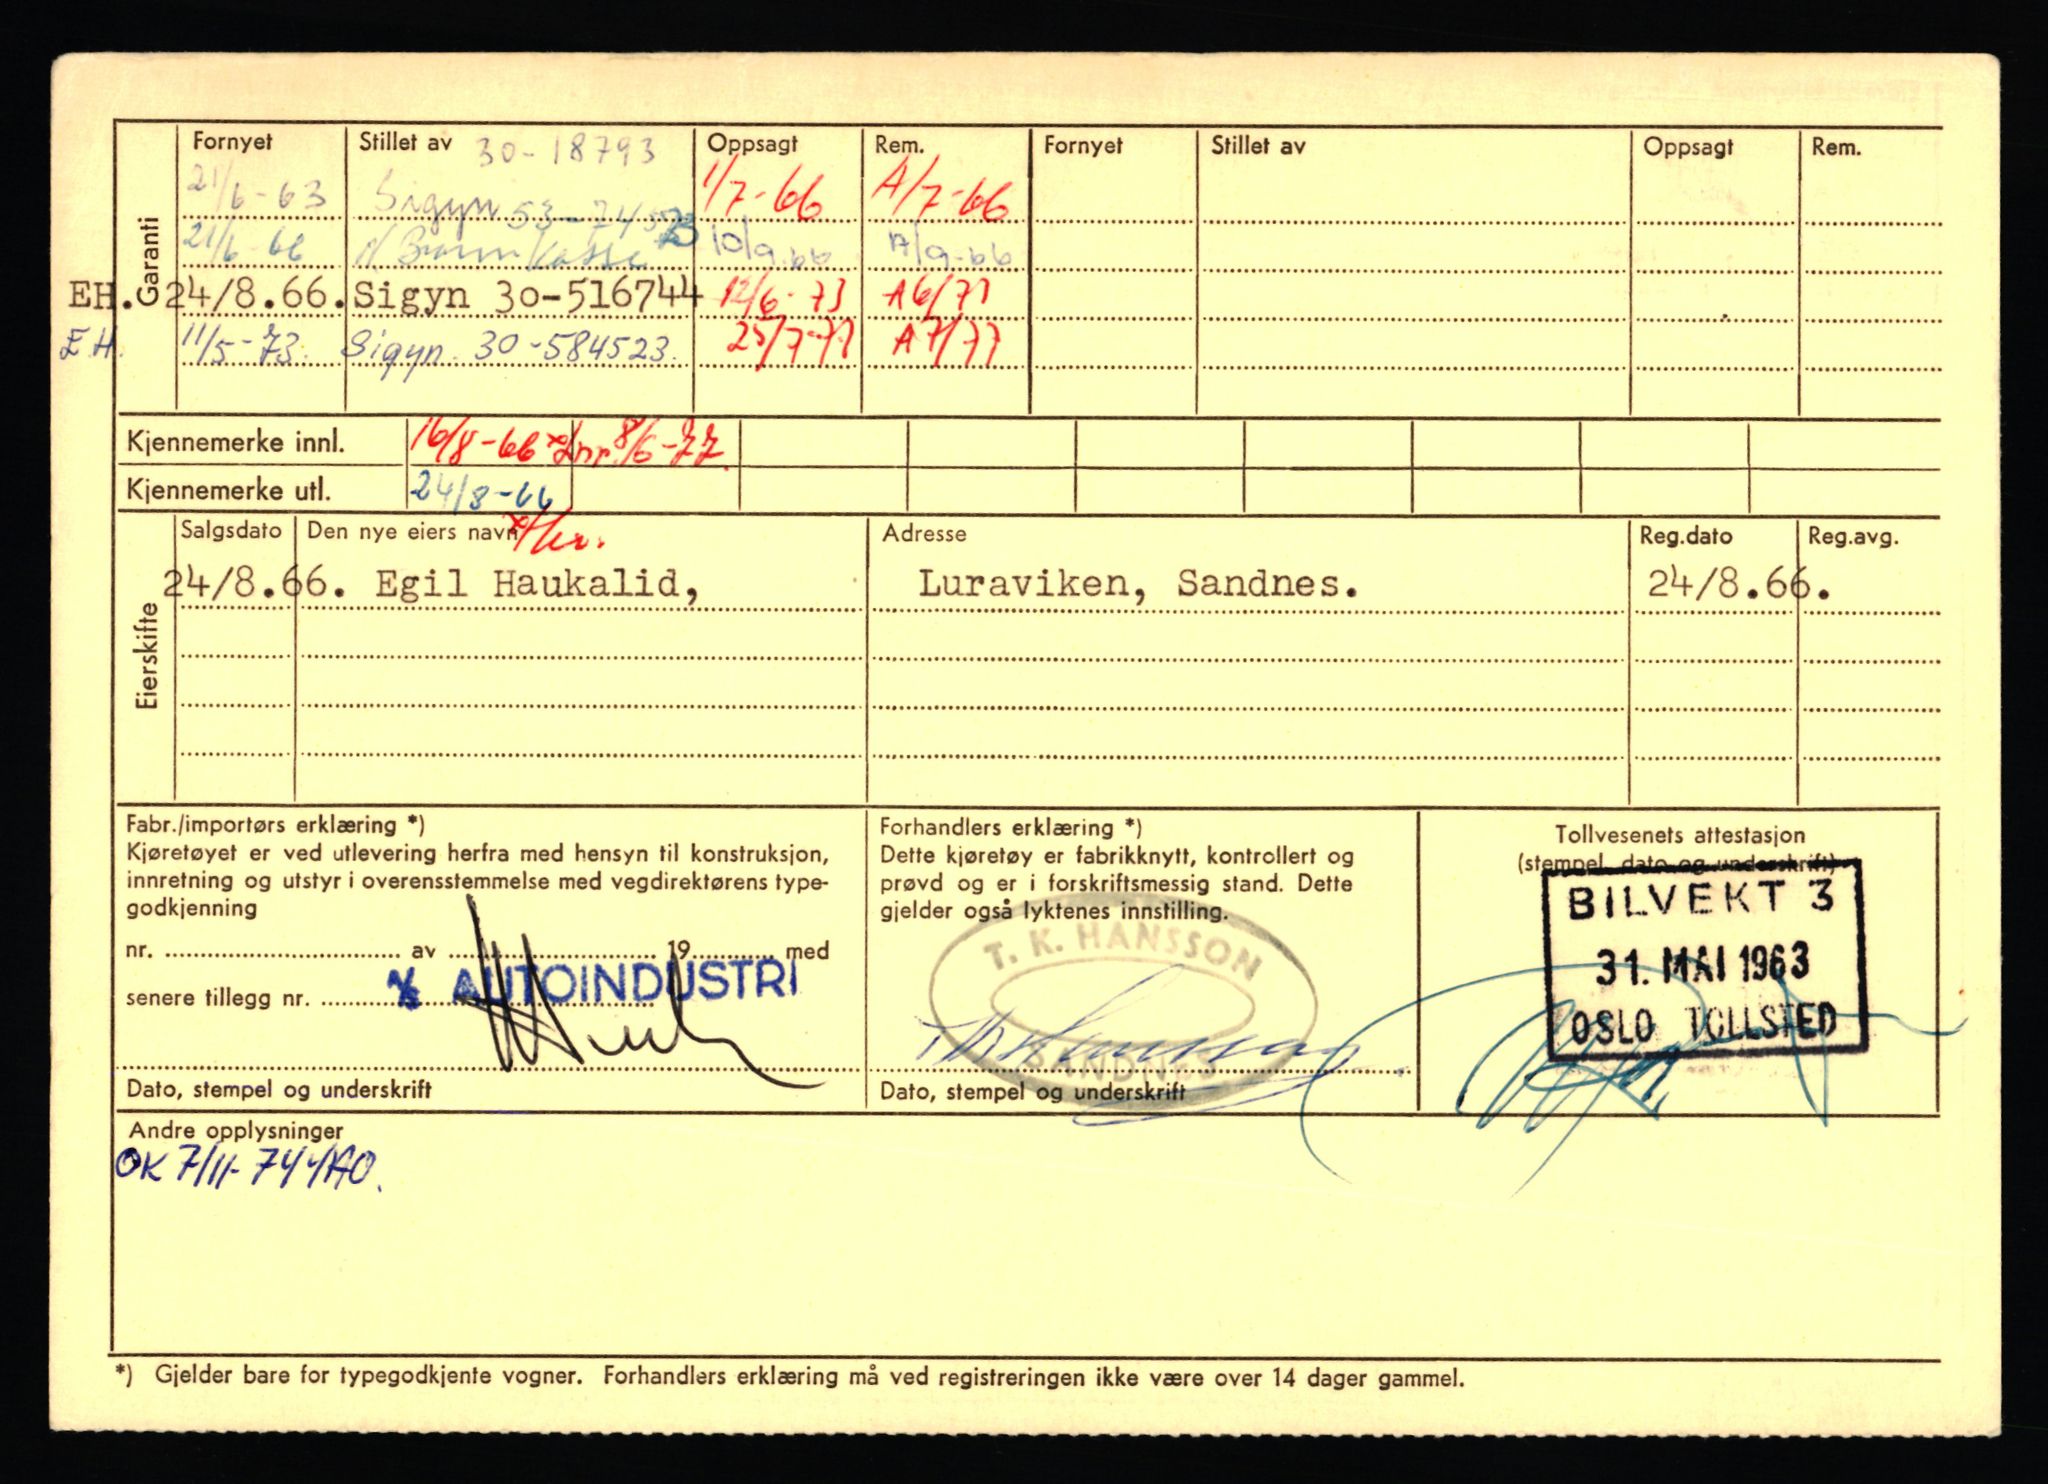 Garanti
Fornyet Stillet av 30-18793 Oppsagt Rem. Fornyet Stillet av Oppsagt Rem.
21/6-63 Sigyn 53-74573 1/7-66 A/7-66
21/6-66 Kasse 10/9.66 A/9-66
EH. 24/8.66. Sigyn 30-516744 12/6-73 A6/73
EH. 11/5-73. Sigyn 30-584523. 25/7-77 A7/77
Kjennemerke innl. 16/8-66 8/6-77.
Kjennemerke utl. 24/8-66
Eierskifte
Salgsdato Den nye eiers navn Adresse Reg.dato Reg.avg.
24/8.66. Egil Haukalid, Luraviken, Sandnes. 24/8.66.
Fabr./importørs erklæring *)
Kjøretøyet er ved utlevering herfra med hensyn til konstruksjon,
innretning og utstyr i overensstemmelse med vegdirektørens type-
godkjenning
nr. av 19 med
senere tillegg nr.
A/S AUTOINDUSTRI
Dato, stempel og underskrift
Forhandlers erklæring *)
Dette kjøretøy er fabrikknytt, kontrollert og
prøvd og er i forskriftsmessig stand. Dette
gjelder også lyktenes innstilling.
T. K. HANSSON
SANDNES
Dato, stempel og underskrift
Tollvesenets attestasjon
(stempel, dato og underskrift)
BILVEKT 3
31. MAI 1963
OSLO TOLLSTED
Andre opplysninger
OK 7/11-74
*) Gjelder bare for typegodkjente vogner. Forhandlers erklæring må ved registreringen ikke være over 14 dager gammel.